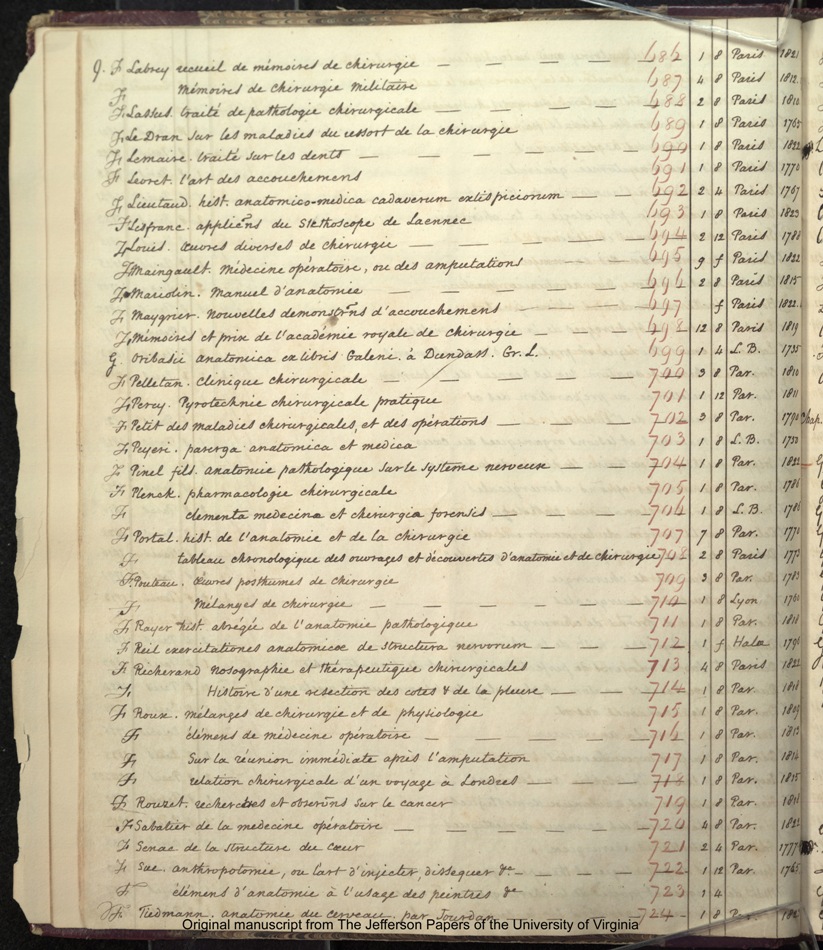 9. F Labrey recueil de mémoires de chirurgie — — — — 686 1 8 Paris 1821
F Mémoires de chirurgie militaire 687 4 8 Paris 1812
F Lassus. traité de pathologie chirurgicale — — — — 688 2 8 Paris 1810
F Le Dran sur les maladies du ressort de la chirurgie 689 1 8 Paris 1765
F Lemaire. traité sur les dents — — — — — 690 1 8 Paris 1822
F Levret. l'art des accouchemens 691 1 8 Paris 1770
F Lieutaud. hist. anatomico-medica cadaverum extispiciorum — — 692 2 4 Paris 1767
F Lisfranc. applicñs du Stethoscope de Laennec 693 1 8 Paris 1823
F Louis. œuvres diverses de chirurgie — — — — 694 2 12 Paris 1788
F Maingault. Médecine opératoire, ou des amputations 695 9 f Paris 1822
F Marjolin. Manuel d'anatomie — — — — — 696 2 8 Paris 1815
F Maygrier. nouvelles demonstrñs d'accouchemens — — — 697 f Paris 1822.
F Mémoires et prix de l'académie royale de chirurgie — — — 698 12 8 Paris 1819
G. Oribasii anatomica ex libris Galeni. à Dundass. Gr. L. 699 1 4 L. B. 1735
F Pelletan. clinique chirurgicale — — — — — 700 3 8 Par. 1810
F Percy. Pyrotechnie chirurgicale pratique 701 1 12 Par. 1811
F Petit des maladies chirurgicales, et des opérations — — — 702 3 8 Par. 1790
F Peyeri. parerga anatomica et medica 703 1 8 L. B. 1750
F Pinel fils. anatomie pathologique sur le systeme nerveux — — 704 1 8 Par. 1822
F Plenck. pharmacologie chirurgicale 705 1 8 Par. 1786
F elementa medecinæ et chirurgiæ forensis — — — 706 1 8 L. B. 1786
F Portal. hist. de l'anatomie et de la chirurgie 707 7 8 Par. 1770
F tableau chronologique des ouvrages et découvertes d'anatomie et de chirurgie 708 2 8 Paris 1773
F Pouteau. œuvres posthumes de chirurgie 709 3 8 Par. 1783
F Mélanges de chirurgie — — — — — 710 1 8 Lyon 1760
F Rayer hist. abrégée de l'anatomie pathologique 711 1 8 Par. 1818
F Reil exercitationes anatomicæ de structura nervorum — — — 712 1 f Halæ 1796
F Richerand nosographie et thérapeutique chirurgicales 713 4 8 Paris 1821
F Histoire d'une resection des cotes & de la pleure — — 714 1 8 Par. 1818
F Roux. mélanges de chirurgie et de physiologie 715 1 8 Par. 1809
F élémens de médecine opératoire — — — — 716 1 8 Par. 1813
F sur la réunion immédiate après l'amputation 717 1 8 Par. 1814
F relation chirurgicale d'un voyage à Londres — — — 718 1 8 Par. 1815
F Rouzet. recherches et obserṽns sur le cancer 719 1 8 Par. 1818
F Sabatier de la medecine opératoire — — — — — 720 4 8 Par. 1822
F Senac de la structure du cœur 721 2 4 Par. 1777
F Sue. anthropotomie, ou l'art d'injecter, dissequer &c — — — 722 1 12 Par. 1765
F élémens d'anatomie à l'usage des peintres &c 723 1 4
F Tiedmann. anatomie du cerveau. par Jourdan — — — 724 1 8 Par.
Original manuscript from The Jefferson Papers of the University of Virginia